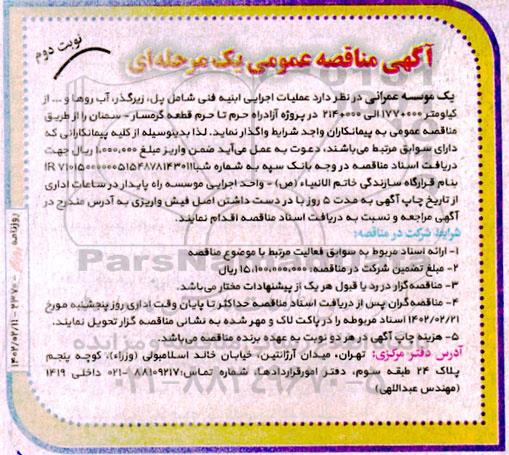 نوبت دوم
آگهی مناقصه عمومی یک مرحله‌ای
یک موسسه عمرانی در نظر دارد عملیات اجرایی ابنیه فنی شامل پل، زیرگذر، آب روها و ... از
کیلومتر ۱۷۷+۰۰۰ الی ۲۱۴+۰۰۰ در پروژه آزادراه حرم تا حرم قطعه گرمسار- سمنان را از طریق
مناقصه عمومی به پیمانکاران واجد شرایط واگذار نماید. لذا بدینوسیله از کلیه پیمانکارانی که
دارای سوابق مرتبط می‌باشند، دعوت به عمل می‌آید ضمن واریز مبلغ ۱,۰۰۰,۰۰۰ ریال جهت
دریافت اسناد مناقصه در وجه بانک سپه به شماره شبا
بنام قرارگاه سازندگی خاتم الانبیاء (ص) - واحد اجرایی موسسه راه پایدار در ساعات اداری
از تاریخ چاپ آگهی به مدت ۵ روز با در دست داشتن اصل فیش واریزی به آدرس مندرج در
آگهی مراجعه و نسبت به دریافت اسناد مناقصه اقدام نمایند.
شرایط شرکت در مناقصه:
۱- ارائه اسناد مربوط به سوابق فعالیت مرتبط با موضوع مناقصه
۲- مبلغ تضمین شرکت در مناقصه: ۱۵,۱۰۰,۰۰۰,۰۰۰ ریال
۳- مناقصه‌گزار در رد یا قبول هر یک از پیشنهادات مختار می‌باشد.
۴- مناقصه‌گران پس از دریافت اسناد مناقصه حداکثر تا پایان وقت اداری روز پنجشنبه مورخ
۱۴۰۲/۰۲/۲۱ اسناد مربوطه را در پاکت لاک و مهر شده به نشانی مناقصه گزار تحویل نمایند.
۵- هزینه چاپ آگهی در هر دو نوبت به عهده برنده مناقصه می‌باشد.
آدرس دفتر مرکزی: تهران، میدان آرژانتین، خیابان خالد اسلامبولی (وزراء)، کوچه پنجم
پلاک ۲۴ طبقه سوم، دفتر امورقراردادها، شماره تماس: ۸۸۱۰۹۲۱۷-۰۲۱ داخلی ۱۴۱۹
(مهندس عبداللهی)
روزنامه
۱۴۰۲/۰۲/۱۱
ParsNa
۰۲۱-۸۸۳۴۹۶۷۰